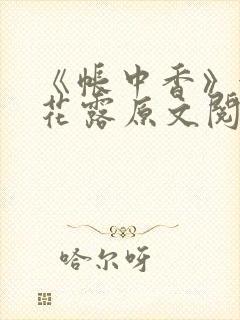 《帐中香》
花露原文阅
哈尔呀